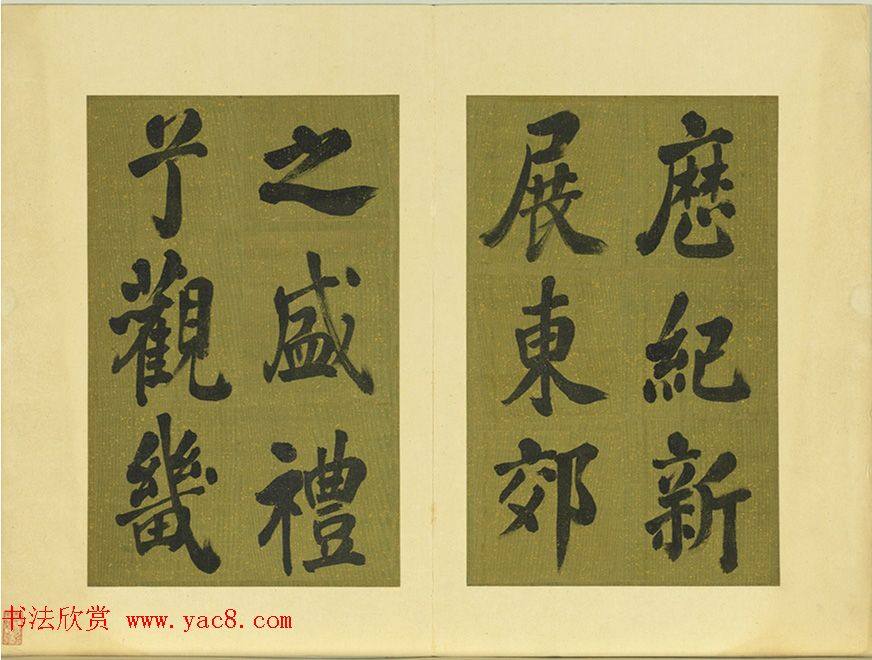 歷紀新
展東郊
之盛禮
觀畿
书法欣赏 www.yac8.com